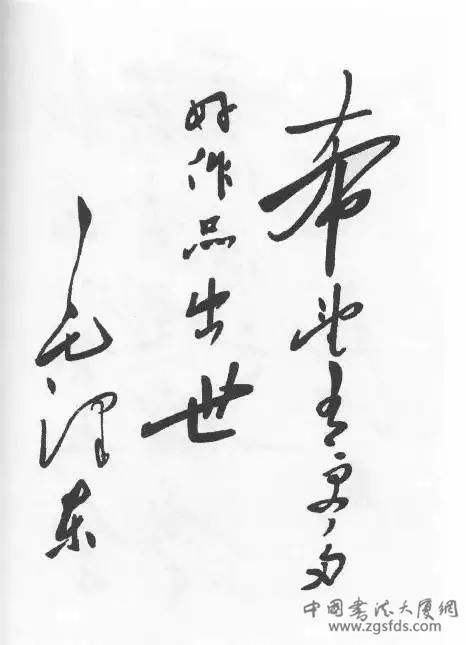 希望有更多
好作品出世
毛泽东
中国书法大厦網
www.zgsfds.com